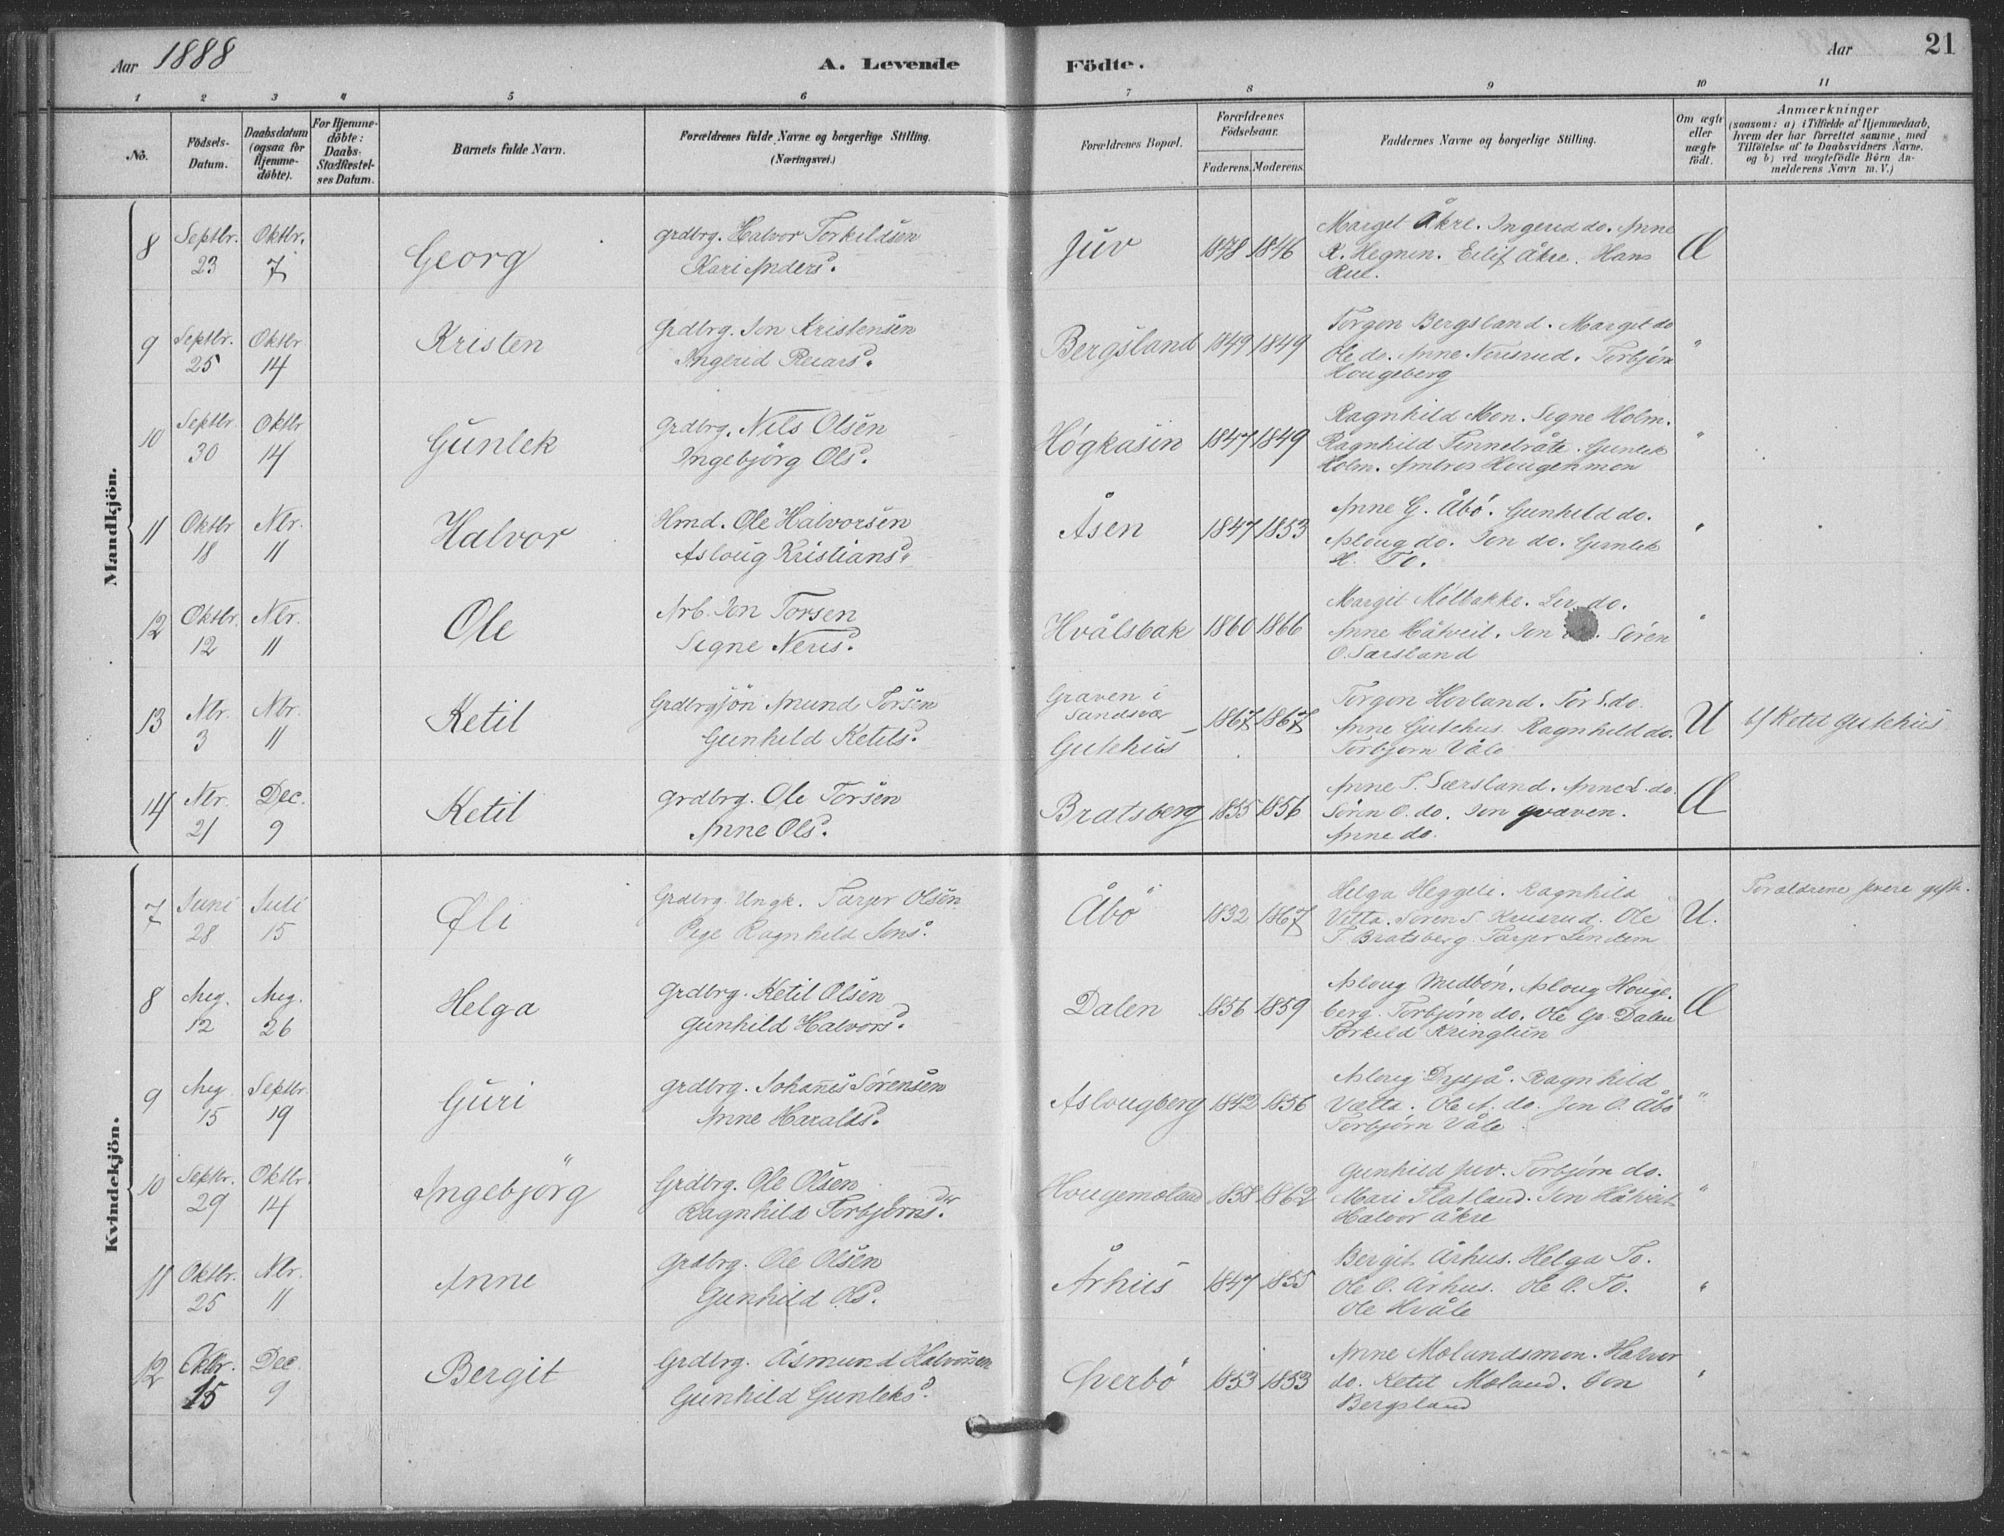 Aar 1888
A. Levende Födte.
Aar
21
1 2 3 4 5 6 7 8 9 10 11
No.
Födsels-Datum.
Daabsdatum (ogsaa for Hjemmedöbte).
For Hjemmedöbte: Daabs-Stadfæstelses Datum.
Barnets fulde Navn.
Forældrenes fulde Navne og borgerlige Stilling. (Næringsvei.)
Forældrenes Bopæl.
Forældrenes Födselsaar.
Faderens. Moderens.
Faddernes Navne og borgerlige Stilling.
Om ægte eller uægte født.
Anmærkninger
(saasom: a) i Tilfælde af Hjemmedaab, hvem der har forrettet samme, med Tilföielse af to Daabsvidners Navne. og b) ved uægtefödte Börn Anmelderens Navn m. V.)
Mandkjön.
8 Septbr. 23 Oktbr. 7 Georg grdbrg. Halvor Torkildsen Kari Anders. Juv 1848 1846 Marget Åkre. Ingerid do. Anne K. Hegnin. Eilif Åkre. Hans Rue. Æ
9 Septbr. 25 Oktbr 14 Kristen Grdbrg. Jon Kristensen Ingerid Reiars. Bergsland 1849 1849 Torgon Bergsland. Margit do Ole do. Anne Nerisrud. Torbjørn Hougeberg "
10 Septbr. 30 Oktbr 14 Gunlek grdbrg. Nils Olsen Ingebjörg Ols. Høgkasin 1847 1849 Ragnhild Mon. Signe Holm. Ragnhild Tinnebråte. Gunlek Holm. Ambros Hougenmon "
11 Oktbr 18 Nbr. 11 Halvor Hmd. Ole Halvorsen Asloug Kristians. Åsen 1847 1853 Anne G. Åbö. Gunhild do. Asloug do. Jon do. Gunlek H. To. "
12 Oktbr. 12 Nbr. 11 Ole Arb. Jon Torsen Signe Neris. Hvålsbak 1860 1866 Margit Mølbakke. Liv do. Anne Håtveit. Jon . Søren O. Særsland "
13 Nbr. 3 Nbr. 11 Ketil Grdbrgsjön Amund Torsen Gunhild Ketils. Graven i Sandsvær Gutehus 1867 1867 Torgon Hovland. Tor S. do. Anne Gutehus. Ragnhild do. Torbjørn Våle U b/ Ketil Gutehus
14 Nbr. 21 Dec. 9 Ketil grdbrg. Ole Torsen Anne Ols. Bratsberg 1855 1856 Anne T. Særsland. Anne S. do. Søren O. do. Jon graven. Anne do. Æ
Kvindekjön.
7 Juni 28 Juli 15 Øli Grdbrg. Ungk. Tarjer Olsen Pige Ragnhild Jons. Åbö 1832 1867 Helga Heggeli. Ragnhild Vetta. Søren S. Kruserud. Ole T. Bratsberg. Tarjer Lindem U. Foraldrene
8 Aug. 12 Aug. 26 Helga grdbrg. Ketil Olsen Gunhild Halvors. Dalen 1856 1859 Asloug Midbön. Asloug Hougeberg. Torbjørn do. Ole Gr. Dalen Torkild Kringlun Æ
9 Aug. 15 Septbr. 19 Guri grdbrg. Johanes Sørensen Anne Haralds. Aslougberg 1842 1856 Asloug Dysjå. Ragnhild Vætta. Ole A. do. Jon O. Åbö Torbjørn Våle "
10 Septbr. 29 Oktbr. 14 Ingebjörg Grdbrg. Ole Olsen Ragnhild Torbjørns. Hougemoland 1858 1862 Gunhild Juv. Torbjørn do. Mari Flatland. Jon Håtveit. Halvor Åkre "
11 Oktbr. 25 Nbr. 11 Anne Grdbrg. Ole Olsen Gunhild Ols. Århus 1847 1855 Bergit Århus. Helga To. Ole O. Århus. Ole O. To. Ole Hvåle "
12 Oktbr. 15 Dec. 9 Bergit Grdbrg. Åsmund Halvorsen Gunhild Gunleks. Øverbö 1853 1853 Anne Molandsmon. Halvor do. Ketil Moland. Jon Bergsland "